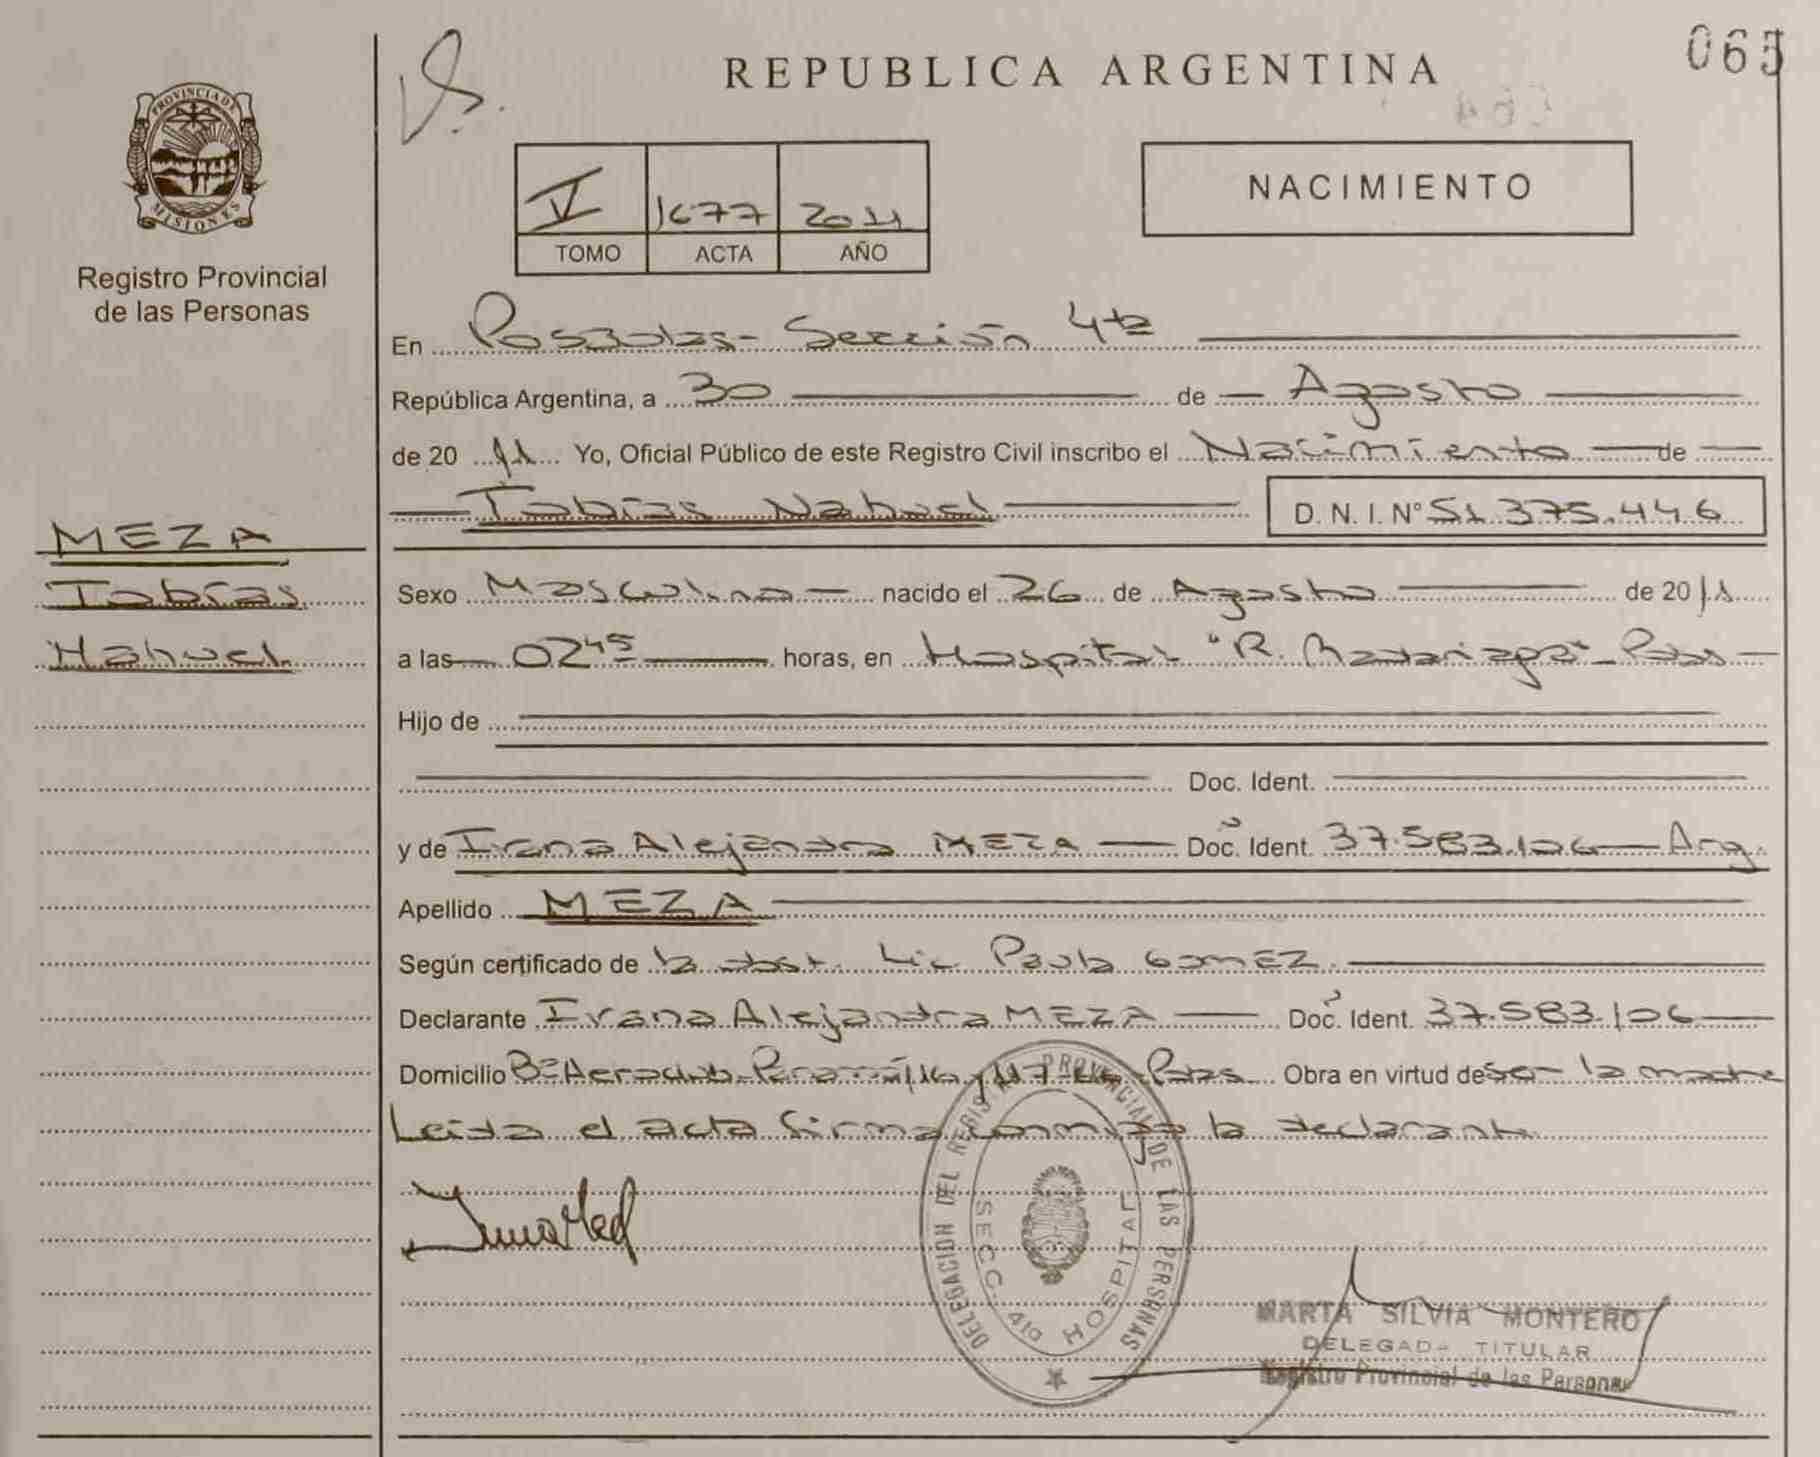 065
REPUBLICA ARGENTINA
PROVINCIA DE
MISIONES
Registro Provincial
de las Personas
V 1677 2011
TOMO ACTA AÑO
NACIMIENTO
En Posadas - Sección 4ta
República Argentina, a 30 de Agosto
de 20 11 Yo, Oficial Público de este Registro Civil inscribo el Nacimiento de
Tobías Nahuel D. N. I. N° 51.375.446
MEZA
Tobías
Nahuel
Sexo Masculino nacido el 26 de Agosto de 20 11
a las 02 45 horas, en Hospital "R. Madariaga" - Pdas
Hijo de
Doc. Ident.
y de Ivana Alejandra MEZA Doc. Ident. 37.583.106 Arg.
Apellido MEZA
Según certificado de la obst. Lic. Paula GOMEZ
Declarante Ivana Alejandra MEZA Doc. Ident. 37.583.106
Domicilio B° Aeroclub - Paraná, 116 y 117 Pdas Obra en virtud de ser la madre
Leída el acta firma conmigo la declarante
DELEGACION DEL REGISTRO PROVINCIAL DE LAS PERSONAS
SECC. 4ta HOSPITAL
MARTA SILVIA MONTERO
DELEGADA TITULAR
Registro Provincial de las Personas